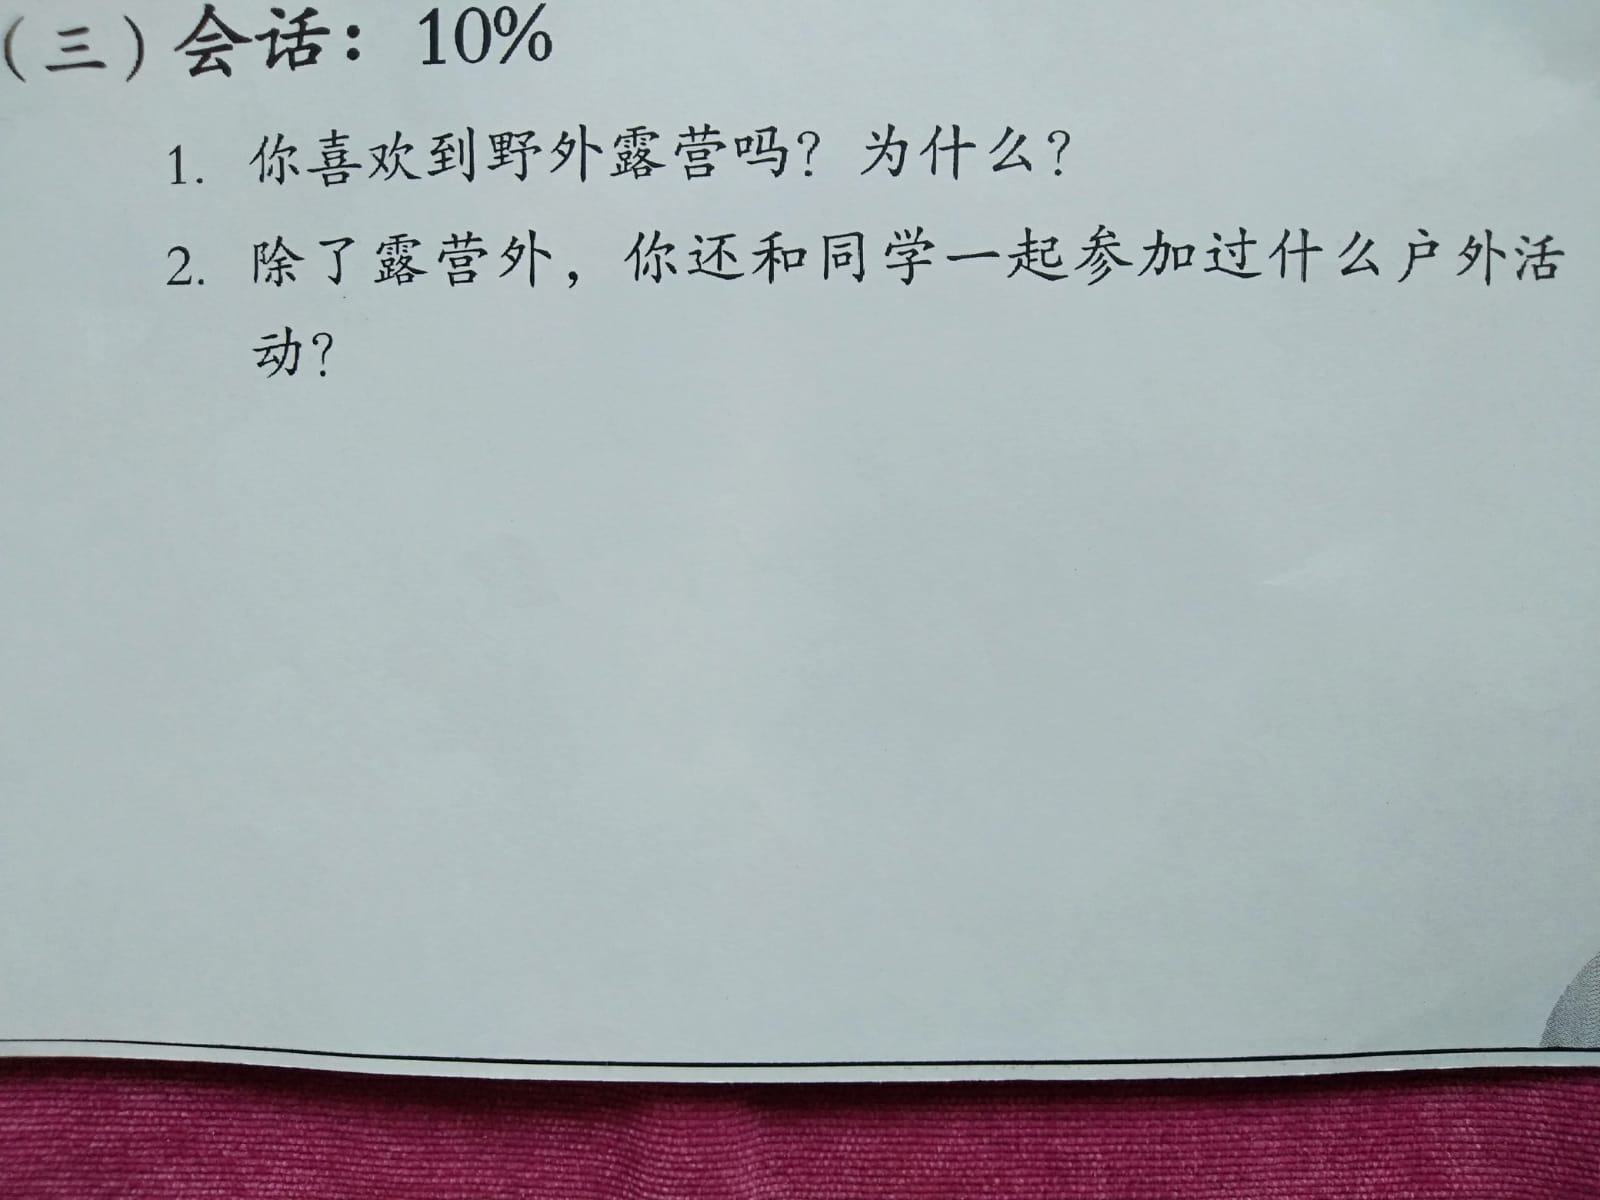 （三）会话：10%
1. 你喜欢到野外露营吗？为什么？
2. 除了露营外，你还和同学一起参加过什么户外活
动？